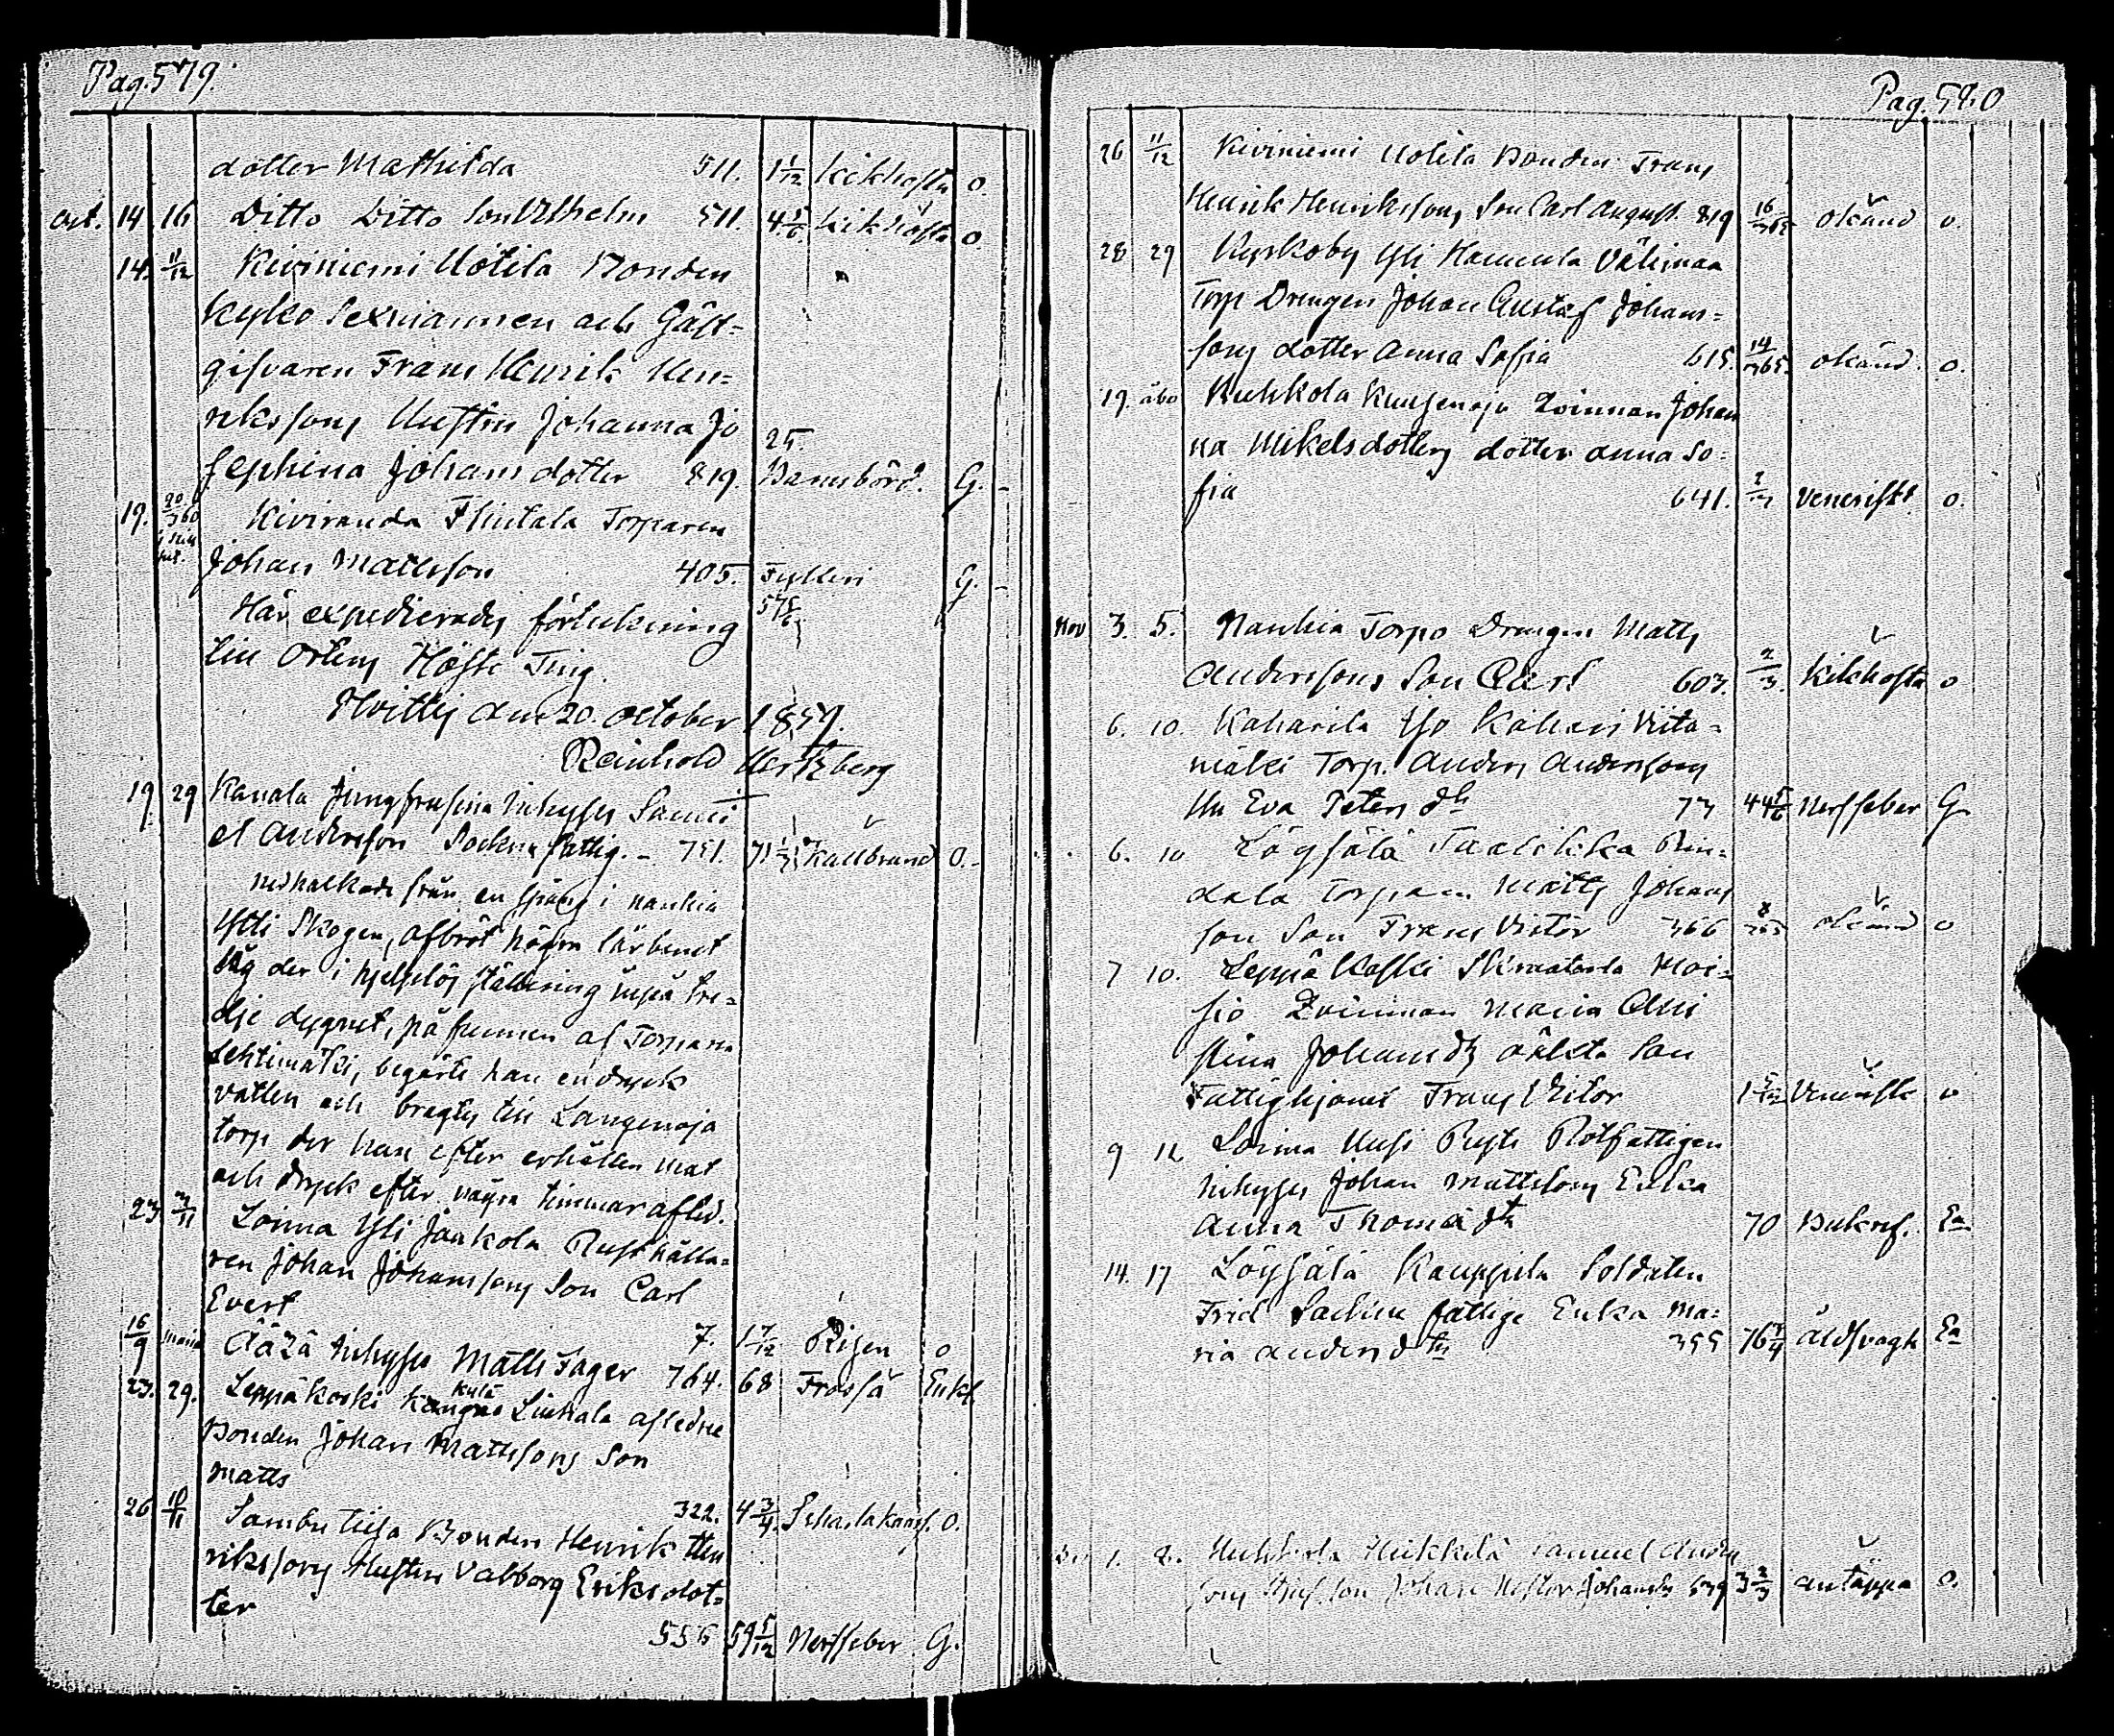 Pag. 579.
dotter Mathilda 511. 1 1/12 Kikhosta o.
Oct. 14 16 Ditto Ditto Son Vilhelm 511. 4 5/6 Kikhosta o.
14. 11/12 Kiviniemi Uotila Bonden
Kyrko Sexmannen och Gäst-
gifvaren Frans Henrik Hen-
rikssons Hustru Johanna Jo
sephina Johansdotter 819. 25. Barnsbörd. G. -
19. Kiviranda Torparen
Johan Mattsson 405. Fylleri G. -
57 5/6
Här expedierades förtekning
till Ortens Höste Ting.
Hvittis den 20. October 1859.
Reinhold Hertzberg
19. 29 Kanala inhyses Samu
el Andersson Sockne fattig. - 751. 71 Kallbrand O. -
nedhalkade från en spång i Nanhia
Ylli Skogen, afbröt högra lårbenet
låg der i hjelplös ställning uppå tre-
dje dygnet, på funnen af Torparn
Lehtimäki, begärte han en dryck
vatten och bragtes till Langenoja
torp der han efter erhållen mat
och dryck efter några timmar afled.
23 3/11 Loima Yli Jaakola Rusthålla-
ren Johan Johanssons Son Carl
Evert 7. 1 7/12 Risen o
16/9 Ääzä Inhyses Matts Fager 764. 68 Frossa Enkl.
23. 29. Leppäkoski kylä Liuhala afledne
Bonden Johan Mattssons Son
Matts 322. 4 3/4. Scharlakansf. O.
26 10/11 Sambu Bonden Henrik Hen
rikssons Hustru Valborg Eriksdot-
ter 556 59 5/12 Nerffeber G.
Pag. 580
26 11/12 Kiviniemi Uotila Bonden Frans
Henrik Henrikssons Son Carl August. 819 16/365 okänd o.
28 29 Kyrkoby Yli Hannula Välimaa
Torp Drengen Johan Gustaf Johans-
sons dotter Anna Sofia 615. 14/365. okänd. o.
19. åbo Huhkola Kuusenoja Qvinnan Johan
na Mikelsdotters dotter Anna So-
fia 641. Veneriskt. o.
Nov 3. 5. Nanhia Torpo Drengen Matts
Anderssons Son Carl 603. 2/3. Kikhosta o
6. 10. Kaharila Iso Kahari Viita-
mäki Torp. Anders Anderssons
Hu Eva Peters dr 73 44 5/6 Nerffeber G.
6. 10 Löysälä Taalikka Rin-
dala Torparn Matts Johans
son Son Frans Victor 366 8/365 okänd o
7 10. Leppä Koski Moi-
sio Qvinnan Maria Chri
stina Johansdr oäkta Son
Fattighjonet Frans Victor 1 5/12 Venerisk o
9 12 Loima Uusi Prysti Rotfattigen
inhyses Johan Mattssons Enka
Anna Thomä dr 70 Bukref. En
14. 17 Löysälä Kauppila Soldaten
Frid Sockne fattige Enka Ma-
ria Anders dr 355 76 3/4 Åldsvagh En
1. 2. Huhkola Heikkilä Samuel Anders
sons son Johan Nestor Johanss 639 3 2/3 andtäppa o.